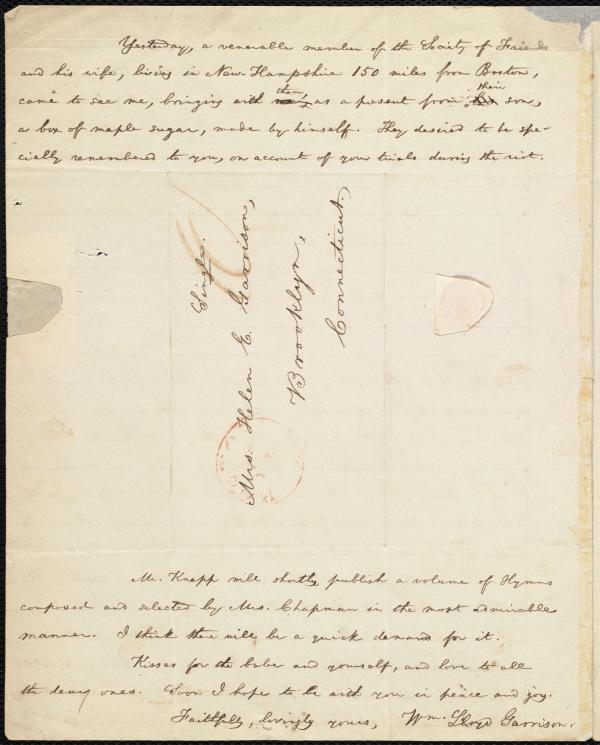 Yesterday, a venerable member of the Society of Friends
and his wife, living in New-Hampshire 150 miles from Boston,
came to see me, bringing with them, as a present from their son,
a box of maple sugar, made by himself. They desired to be spe-
cially remembered to you, on account of your trials during the riot.
Single.
Mrs. Helen E. Garrison,
Brooklyn,
Connecticut.
Mr. Knapp will shortly publish a volume of Hymns
composed and selected by Mrs. Chapman in the most admirable
manner. I think there will be a quick demand for it.
Kisses for the babe and yourself, and love to all
the dear ones. Soon I hope to be with you in peace and joy.
Faithfully, lovingly yours, Wm. Lloyd Garrison.